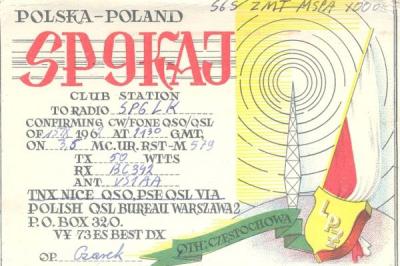 S6S ZMT MSPA
POLSKA-POLAND
SP9KAJ
CLUB STATION
TO RADIO SP6LK
CONFIRMING CW/FONE QSO/QSL
OF 196 AT 2130 GMT,
ON 3,5 MC. UR. RST-M 579
TX 50 WTTS
RX BC342
ANT
TNX NICE QSO, PSE QSL VIA
POLISH QSL BUREAU WARSZAWA 2
P.O. BOX 320.
VY 73 ES BEST DX
OP. Czarek
LPŻ
QTH: CZĘSTOCHOWA